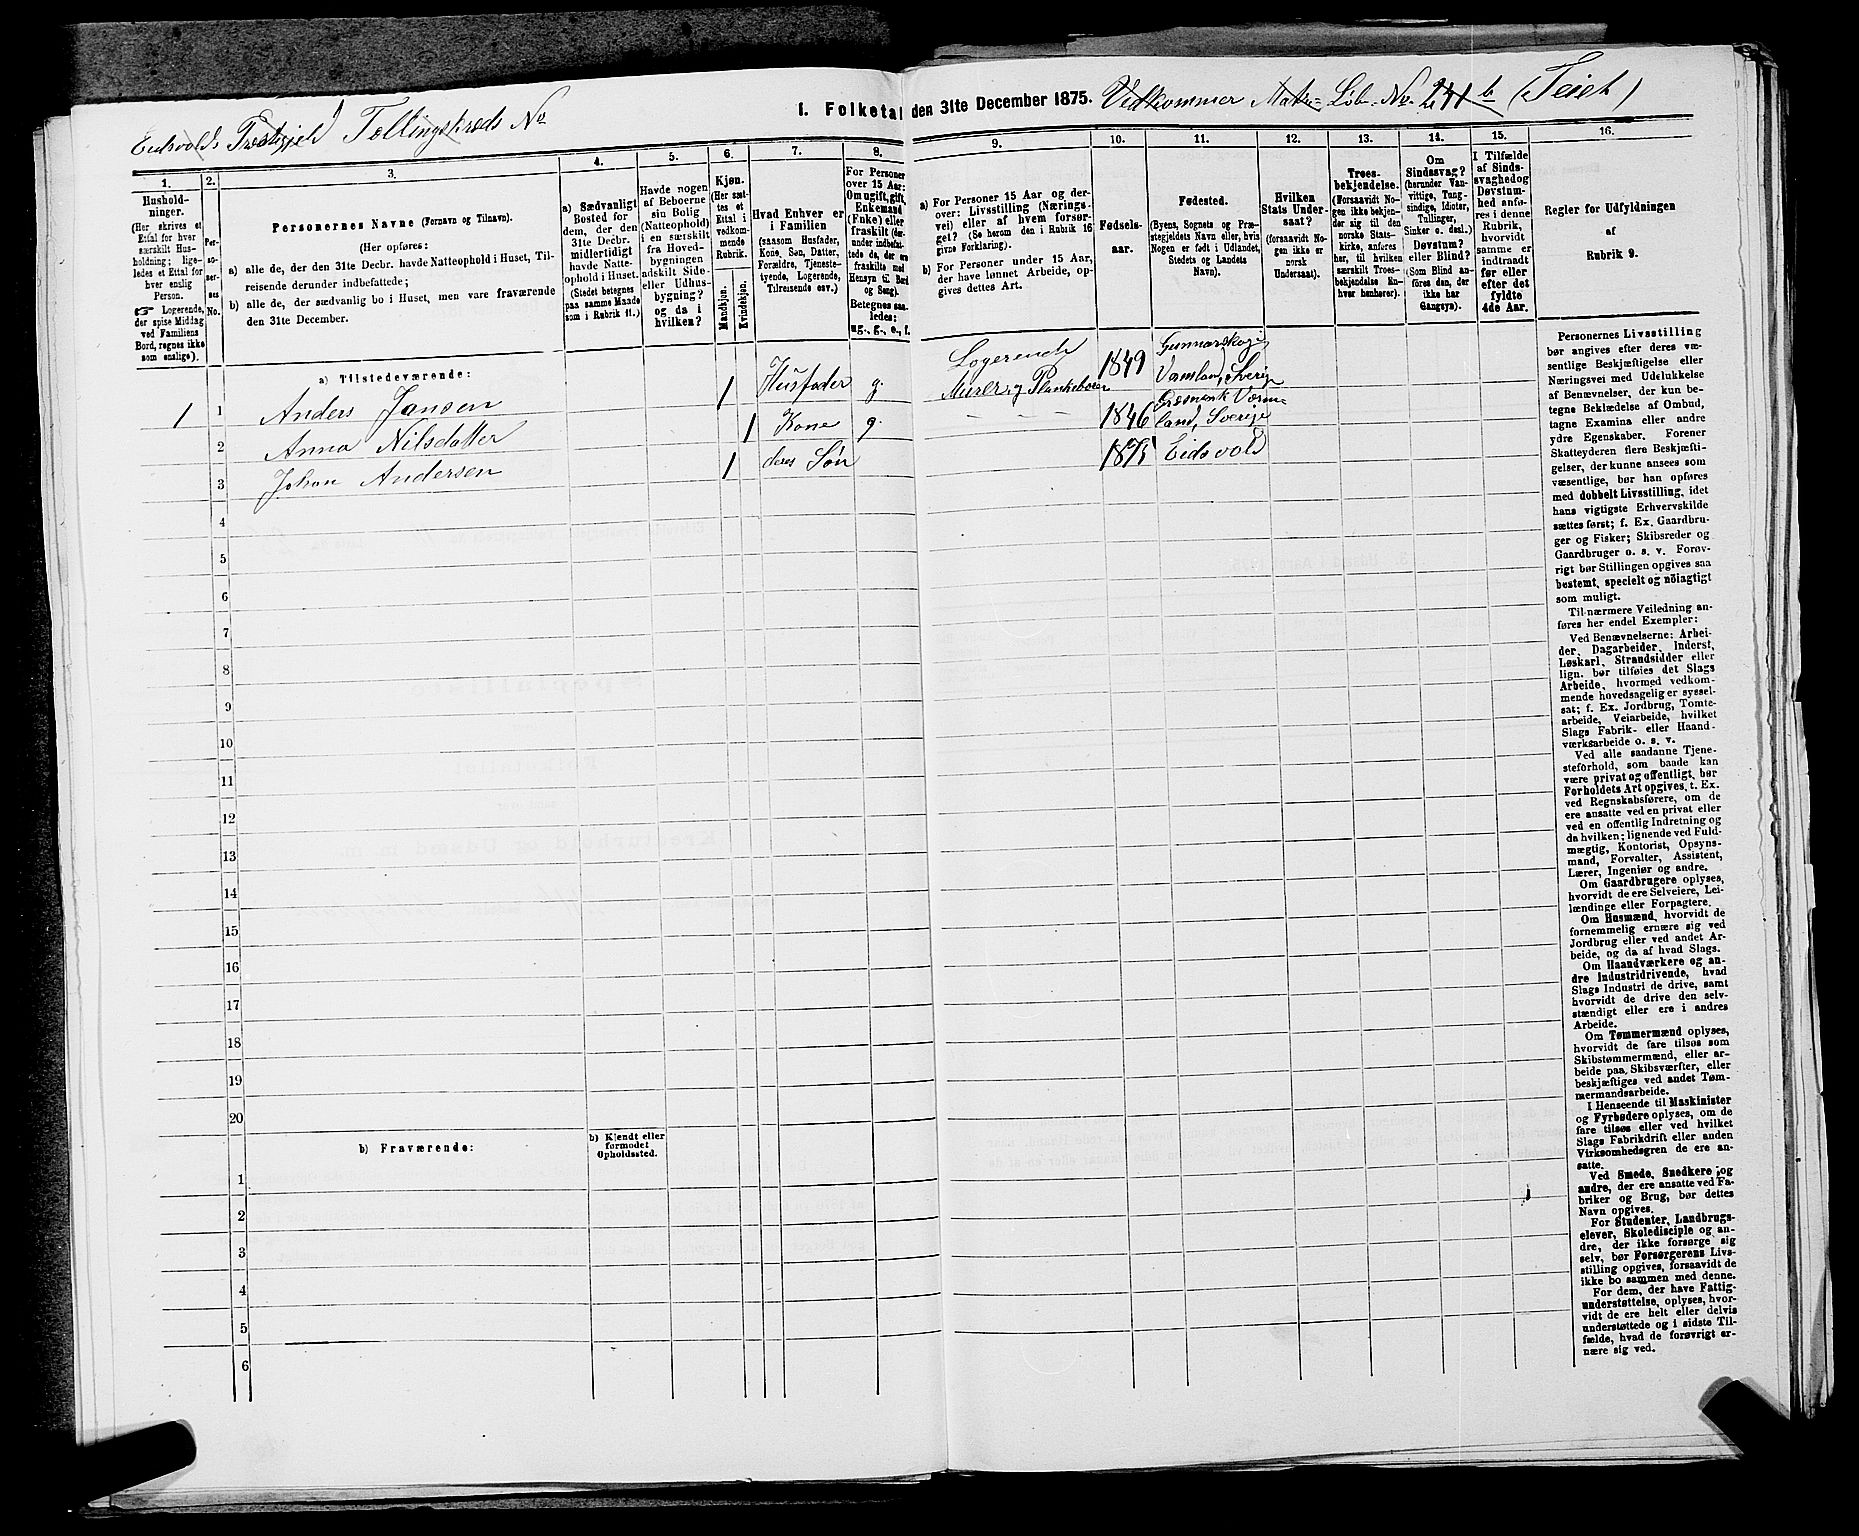 I. Folketal den 31te December 1875. Vedkommer Matr.- Løb.-No. 211 b (Teiet)
Eidsvolds Præstegjeld Tællingskreds No
1.
Husholdninger.
(Her skrives et
Ettal for hver
særskilt Hus-
holdning; lige-
ledes et Ettal for
hver enslig
Person.
☞ Logerende,
der spise Middag
ved Familiens
Bord, regnes ikke
som enslige).
2.
Per-
so-
ner-
nes
No.
3.
Personernes Navne (Fornavn og Tilnavn).
(Her opføres:
a) alle de, der den 31te Decbr. havde Natteophold i Huset, Til-
reisende derunder indbefattede;
b) alle de, der sædvanlig bo i Huset, men vare fraværende
den 31te December.
4.
a) Sædvanligt
Bosted for
dem, der den
31te Decbr.
midlertidigt
havde Natte-
ophold i Huset.
(Stedet betegnes
paa samme Maade
som i Rubrik 11.)
5.
Havde nogen
af Beboerne
sin Bolig
(Natteophold)
i en særskilt
fra Hoved-
bygningen
adskilt Side-
eller Udhus-
bygning?
og da i
hvilken?
6.
Kjøn.
(Her sæt-
tes et
Ettal i
vedkom-
mende
Rubrik.
Mandkjøn.
Kvindekjøn.
7.
Hvad Enhver er
i Familien
(saasom Husfader,
Kone, Søn, Datter,
Forældre, Tjeneste-
tyende, Logerende,
Tilreisende osv.)
8.
For Personer
over 15 Aar:
Om ugift, gift,
Enkemand
(Enke) eller
fraskilt (der-
under indbefat-
tede de, der ere
fraskilte med
Hensyn til Bord
og Seng).
Betegnes saa-
ledes:
ug., g., e., f.
9.
a) For Personer 15 Aar og der-
over: Livsstilling (Nærings-
vei) eller af hvem forsør-
get? (Se herom den i Rubrik 16
givne Forklaring).
b) For Personer under 15 Aar,
der have lønnet Arbeide, op-
gives dettes Art.
10.
Fødsels-
aar.
11.
Fødested.
(Byens, Sognets og Præ-
stegjeldets Navn eller, hvis
Nogen er født i Udlandet,
Stedets og Landets
Navn).
12.
Hvilken
Stats Under-
saat?
(forsaavidt No-
gen ikke er
norsk
Undersaat).
13.
Troes-
bekjendelse.
(Forsaavidt No-
gen ikke bekjen-
der sig til den
norske Stats-
kirke, anføres
her, til hvilken
særskilt Troes-
bekjendelse En-
hver henhører).
14.
Om
Sindssvag?
(herunder Van-
vittige, Tung-
sindige, Idioter,
Tullinger,
Sinker o. desl.)
Døvstum?
eller Blind?
(Som Blind an-
føres den, der
ikke har
Gangsyn).
15.
I Tilfælde
af Sinds-
svaghed og
Døvstum-
hed anfø-
res i denne
Rubrik,
hvorvidt
samme er
indtraadt
før eller
efter det
fyldte
4de Aar.
16.
Regler for Udfyldningen
af
Rubrik 9.
a) Tilstedeværende:
1 1 Anders Jansen 1 Husfader g. Logerende Murer og Plankebærer 1849 Gunnarskog Værmland, Sverige
2 Anna Nilsdatter 1 Kone g. — — — 1846 Græsmark Værm-land, Sverige
3 Johan Andersen 1 deres Søn 1875 Eidsvold
4
5
6
7
8
9
10
11
12
13
14
15
16
17
18
19
20
b) Fraværende:
b) Kjendt eller
formodet
Opholdssted.
1
2
3
4
5
6
Personernes Livsstilling
bør angives efter deres væ-
sentlige Beskjæftigelse eller
Næringsvei med Udelukkelse
af Benævnelser, der kun be-
tegne Beklædelse af Ombud,
tagne Examina eller andre
ydre Egenskaber. Forener
Skatteyderen flere Beskjæfti-
gelser, der kunne ansees som
væsentlige, bør han opføres
med dobbelt Livsstilling, idet
hans vigtigste Erhvervskilde
sættes først; f. Ex. Gaardbru-
ger og Fisker; Skibsreder og
Gaardbruger o. s. v. Forøv-
rigt bør Stillingen opgives saa
bestemt, specielt og nöiagtigt
som muligt.
Til nærmere Veiledning an-
føres her endel Exempler:
Ved Benævnelserne: Arbei-
der, Dagarbeider, Inderst,
Løskarl, Strandsidder eller
lign. bør tilføies det Slags
Arbeide, hvormed vedkom-
mende hovedsagelig er syssel-
sat; f. Ex. Jordbrug, Tomte-
arbeide, Veiarbeide, hvilket
Slags Fabrik- eller Haand-
værksarbeide o. s. v.
Ved alle saadanne Tjene-
steforhold, som baade kan
være privat og offentligt, bør
Forholdets Art opgives, t. Ex.
ved Regnskabsførere, om de
ere ansatte ved en privat eller
ved en offentlig Indretning og
da hvilken; lignende ved Fuld-
mægtig, Kontorist, Opsyns-
mand, Forvalter, Assistent,
Lærer, Ingeniør og andre.
Om Gaardbrugere oplyses,
hvorvidt de ere Selveiere, Lei-
lændinge eller Forpagtere.
Om Husmænd, hvorvidt de
fornemmelig ernære sig ved
Jordbrug eller ved andet Ar-
beide, og da af hvad Slags.
Om Haandværkere og an-
dre Industridrivende, hvad
Slags Industri de drive, samt
hvorvidt de drive den selv-
stændigt eller ere i andres
Arbeide.
Om Tømmermænd oplyses,
hvorvidt de fare tilsøs som
Skibstømmermænd, eller ar-
beide paa Skibsværfter, eller
beskjæftiges ved andet Tøm-
mermandsarbeide.
I Henseende til Maskinister
og Fyrbødere oplyses, om de
fare tilsøs eller ved hvilket
Slags Fabrikdrift eller anden
Virksomhedsgren de ere an-
satte.
Ved Smede, Snedkere og
andre, der ere ansatte ved Fa-
briker og Brug, bør dettes
Navn opgives.
For Studenter, Landbrugs-
elever, Skoledisciple og an-
dre, der ikke forsørge sig
selv, bør Forsørgerens Livs-
stilling opgives, forsaavidt de
ikke bo sammen med denne.
For dem, der have Fattig-
understøttelse, oplyses, hvor-
vidt de ere helt eller delvis
understøttede og i sidste Til-
fælde, hvad de forøvrigt er-
nære sig ved.